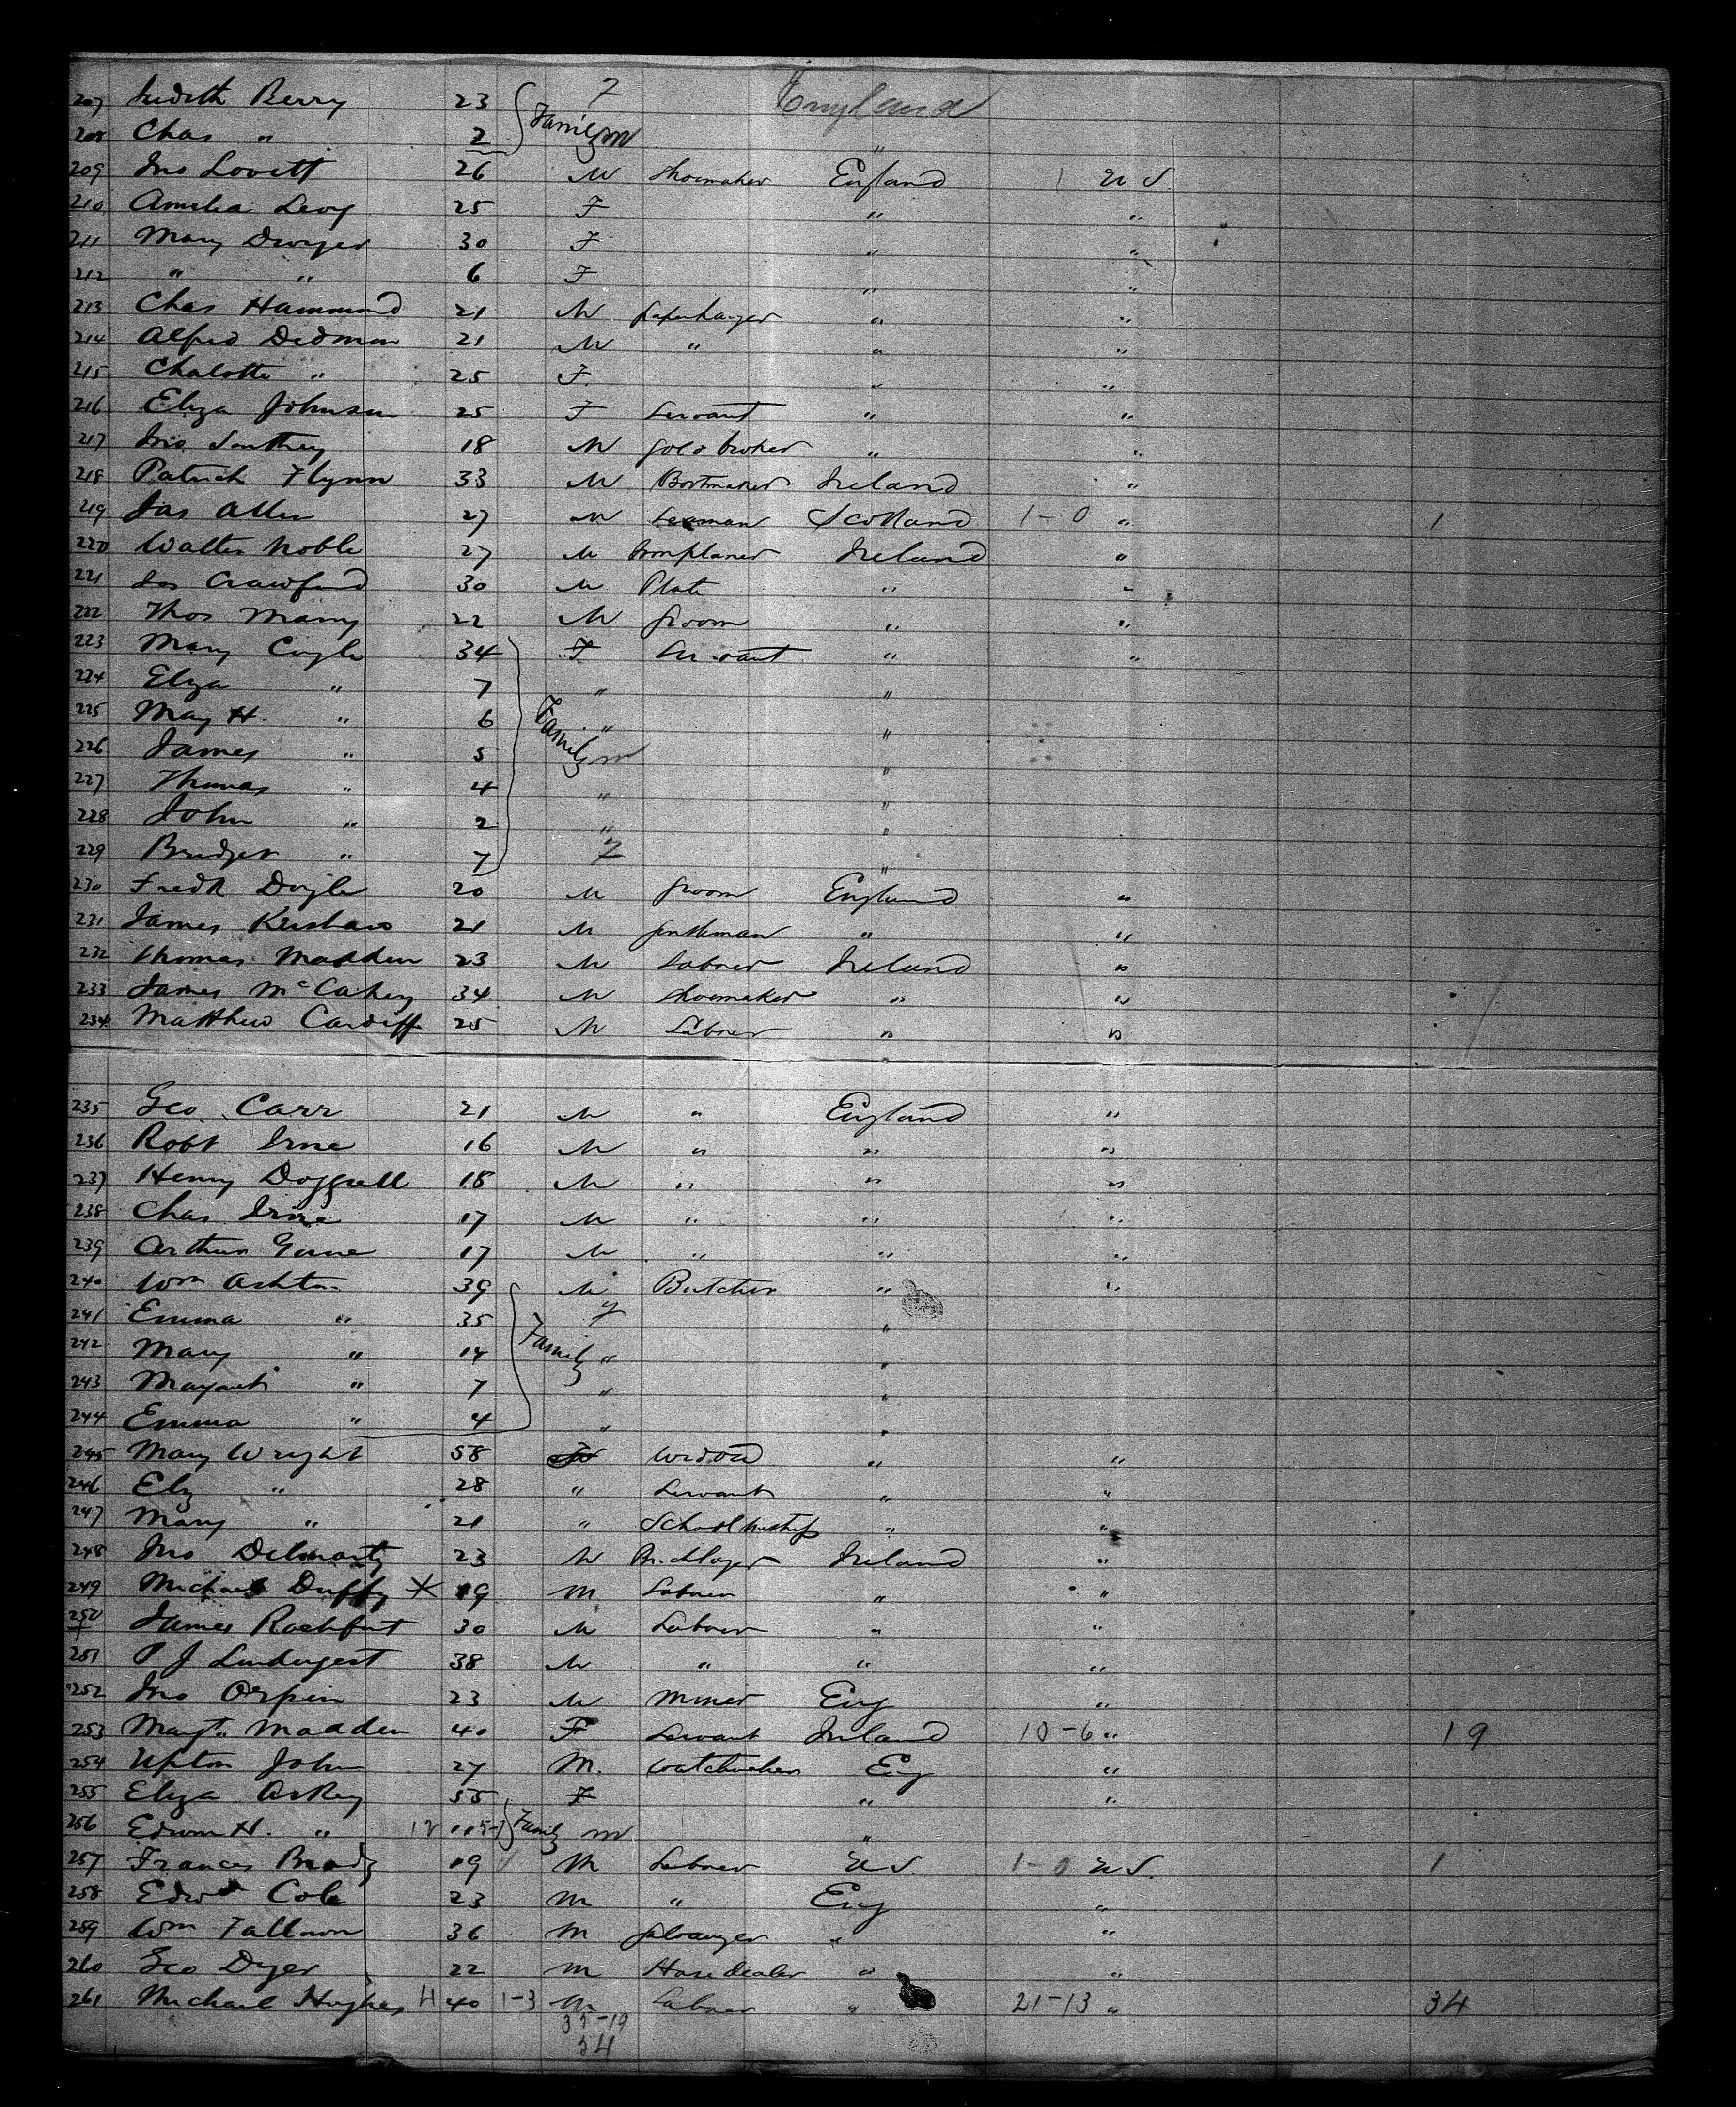 207 Judith Berry 23 Family F England
208 Chas " 2 m "
209 Jno Lovett 26 M Shoemaker England 1 U S.
210 Amelia Levy 25 F " "
211 Mary Dwyer 30 F " "
212 " " 6 F " "
213 Chas Hammond 21 M paperhanger " "
214 Alfred Dedman 21 M " " "
215 Chalotte " 25 F. " "
216 Eliza Johnson 25 F Servant " "
217 Jno Southey 18 M Gold broker " "
218 Patrick Flynn 33 M Bootmaker Ireland "
219 Jas Allen 27 M Seaman Scotland 1-0 " 1
220 Walter Noble 27 M Ironplaner Ireland "
221 Jas Crawford 30 M Plate " "
222 Thos Many 22 M Groom " "
223 Mary Coyle 34 Family F Servant " "
224 Eliza " 7 " "
225 May H. " 6 " "
226 James " 5 m "
227 Thomas " 4 " "
228 John " 2 " "
229 Bridget " 7 F "
230 Fredk Doyle 20 M Groom England "
231 James Kershaw 21 M Gentleman " "
232 Thomas Madden 23 M Laborer Ireland "
233 James McCahey 34 M Shoemaker " "
234 Matthew Cardiff 25 M Laborer " "
235 Geo Carr 21 M " England "
236 Robt 16 M " " "
237 Henry Doggrell 18 M " " "
238 Chas 17 M " " "
239 Arthur 17 M " " "
240 Wm Ashton 39 Family M Butcher " "
241 Emma " 35 F "
242 Mary " 14 " "
243 Margaret " 7 " "
244 Emma " 4 " "
245 Mary Wright 58 F Widow " "
246 Eliz " 28 " Servant " "
247 Mary " 21 " " "
248 Jno Delmarty 23 M Bricklayer Ireland "
249 Michael Duffy X 19 M Laborer " "
250 James Rochfort 30 M Laborer " "
251 P J 38 M " " "
252 Jno Orpin 23 M Miner Eng "
253 Margt. Madden 40 F Servant Ireland 10-6 " 19
254 Upton John 27 M. Watchmaker Eng "
255 Eliza Askey 55 Family F " "
256 Edwin H. " 12 m "
257 Frances Brady 19 M Laborer U S. 1-0 U S. 1
258 Edwd Cole 23 M " Eng "
259 Wm Fallown 36 M Galvanizer " "
260 Geo Dyer 22 M Horse dealer " "
261 Michael Hughes H 40 1-3 M Laborer " 21-13 " 34
35-19
54